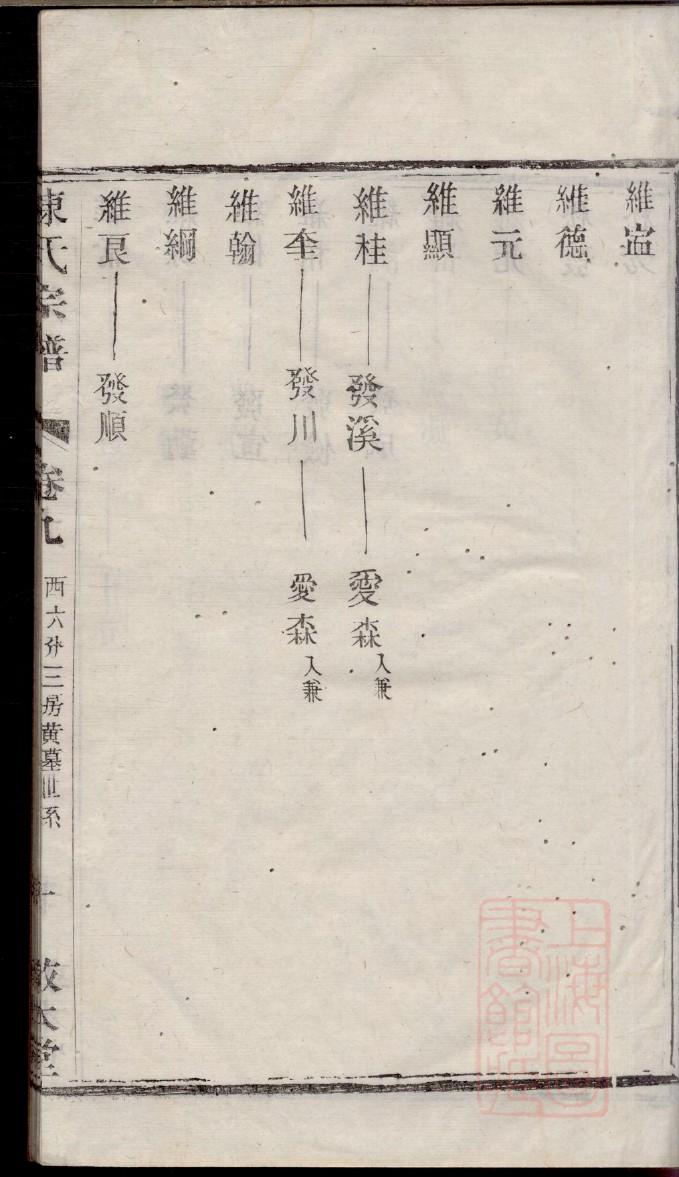 維𡷫
維德
維元
維顯
維桂 發溪 愛森 入兼
維奎 發川 愛森 入兼
維翰
維綱
維良 發順
陳氏宗譜 卷九 西六分三房黃墓世系 十 敬本堂
上海圖書館藏